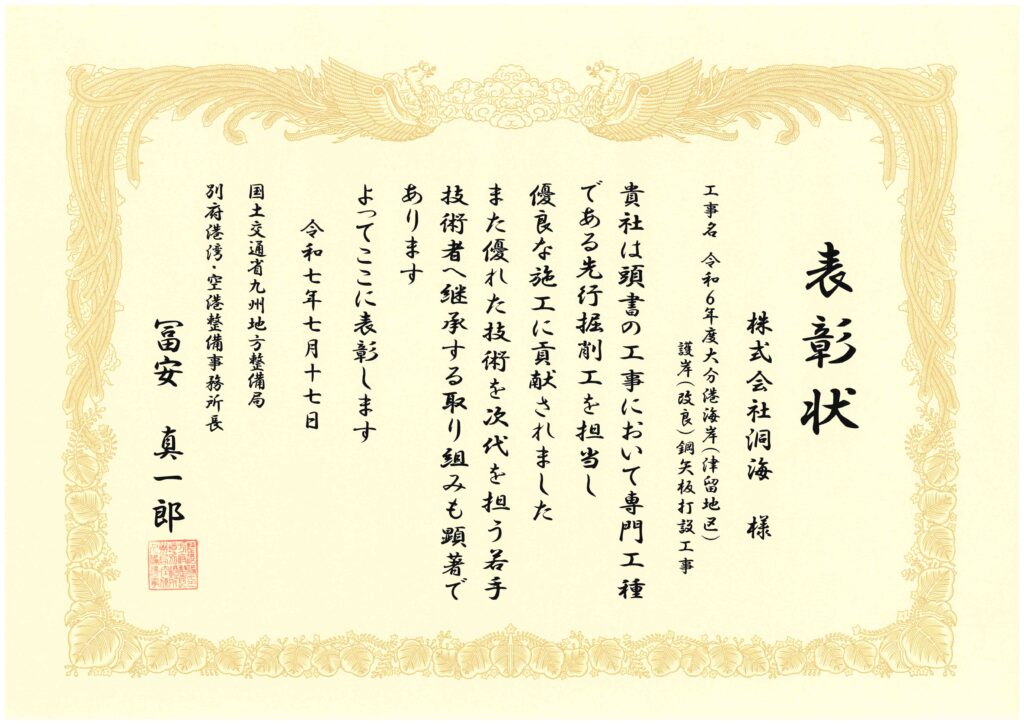 表彰状
株式会社洞海 様
工事名 令和6年度大分港海岸(津留地区)
護岸(改良)鋼矢板打設工事
貴社は頭書の工事において専門工種
である先行掘削工を担当し
優良な施工に貢献されました
また優れた技術を次代を担う若手
技術者へ継承する取り組みも顕著で
あります
よってここに表彰します
令和七年七月十七日
国土交通省九州地方整備局
別府港湾・空港整備事務所長
冨安 真一郎